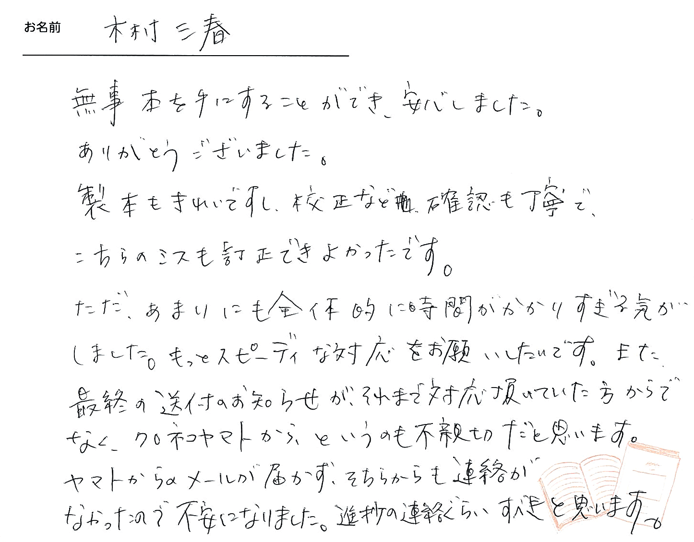 お名前 木村 三春
無事 本を手にすることができ、安心しました。
ありがとうございました。
製本もきれいですし、校正など 確認も丁寧で、
こちらのミスも訂正できよかったです。
ただ、あまりにも全体的に時間がかかりすぎる気が
しました。もっとスピーディな対応をお願いしたいです。また、
最終の送付のお知らせが、それまで対応頂いていた方からで
なく、クロネコヤマトから、というのも不親切だと思います。
ヤマトからのメールが届かず、そちらからも連絡が
なかったので不安になりました。進捗の連絡ぐらいすべきと思います。